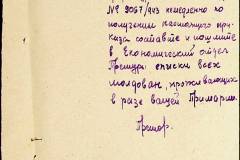 № 9067/943 немедленно по
получении настоящего при-
каза составьте и пошлите
в Экономический отдел
Претуры списки всех
молдован, проживающих
в разе вашей Примарии.
Претор.